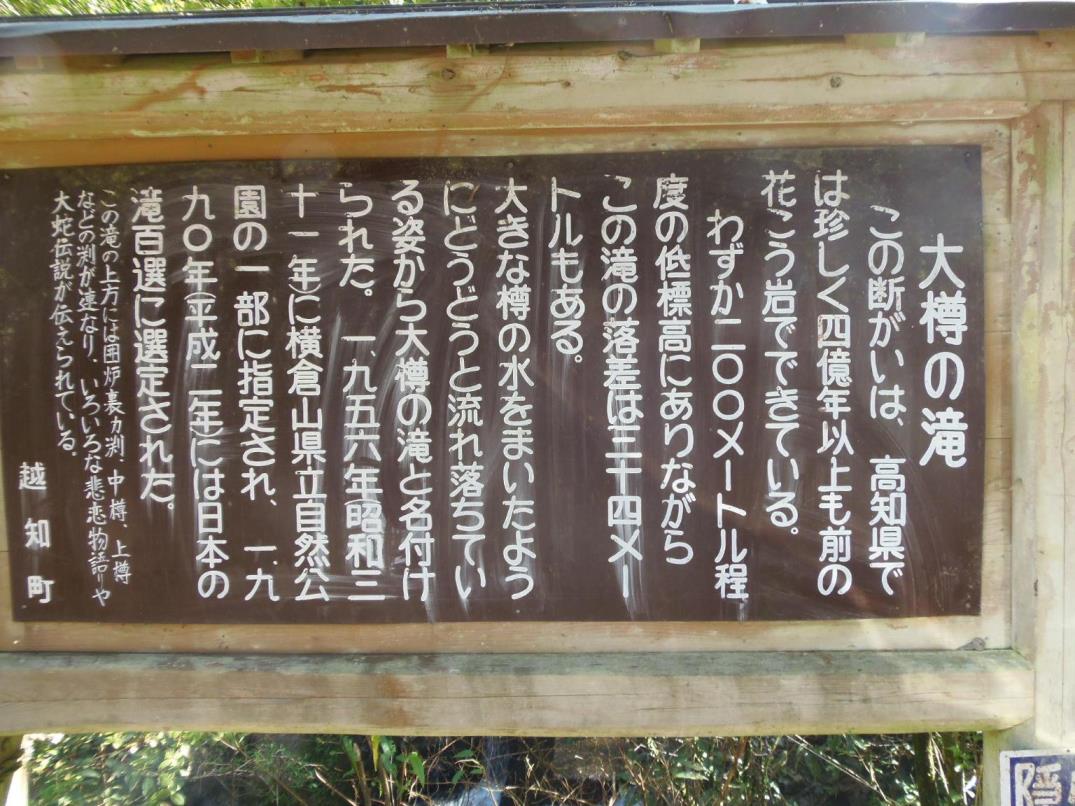 大樽の滝
この断がいは、高知県で
は珍しく四億年以上も前の
花こう岩でできている。
わずか二〇〇メートル程
度の低標高にありながら
この滝の落差は三十四メー
トルもある。
大きな樽の水をまいたよう
にどうどうと流れ落ちてい
る姿から大樽の滝と名付け
られた。一、九五六年(昭和三
十一年)に横倉山県立自然公
園の一部に指定され、一、九
九〇年(平成二年)には日本の
滝百選に選定された。
この滝の上方には囲炉裏ヵ渕、中樽、上樽
などの渕が連なり、いろいろな悲恋物語りや
大蛇伝説が伝えられている。
越知町